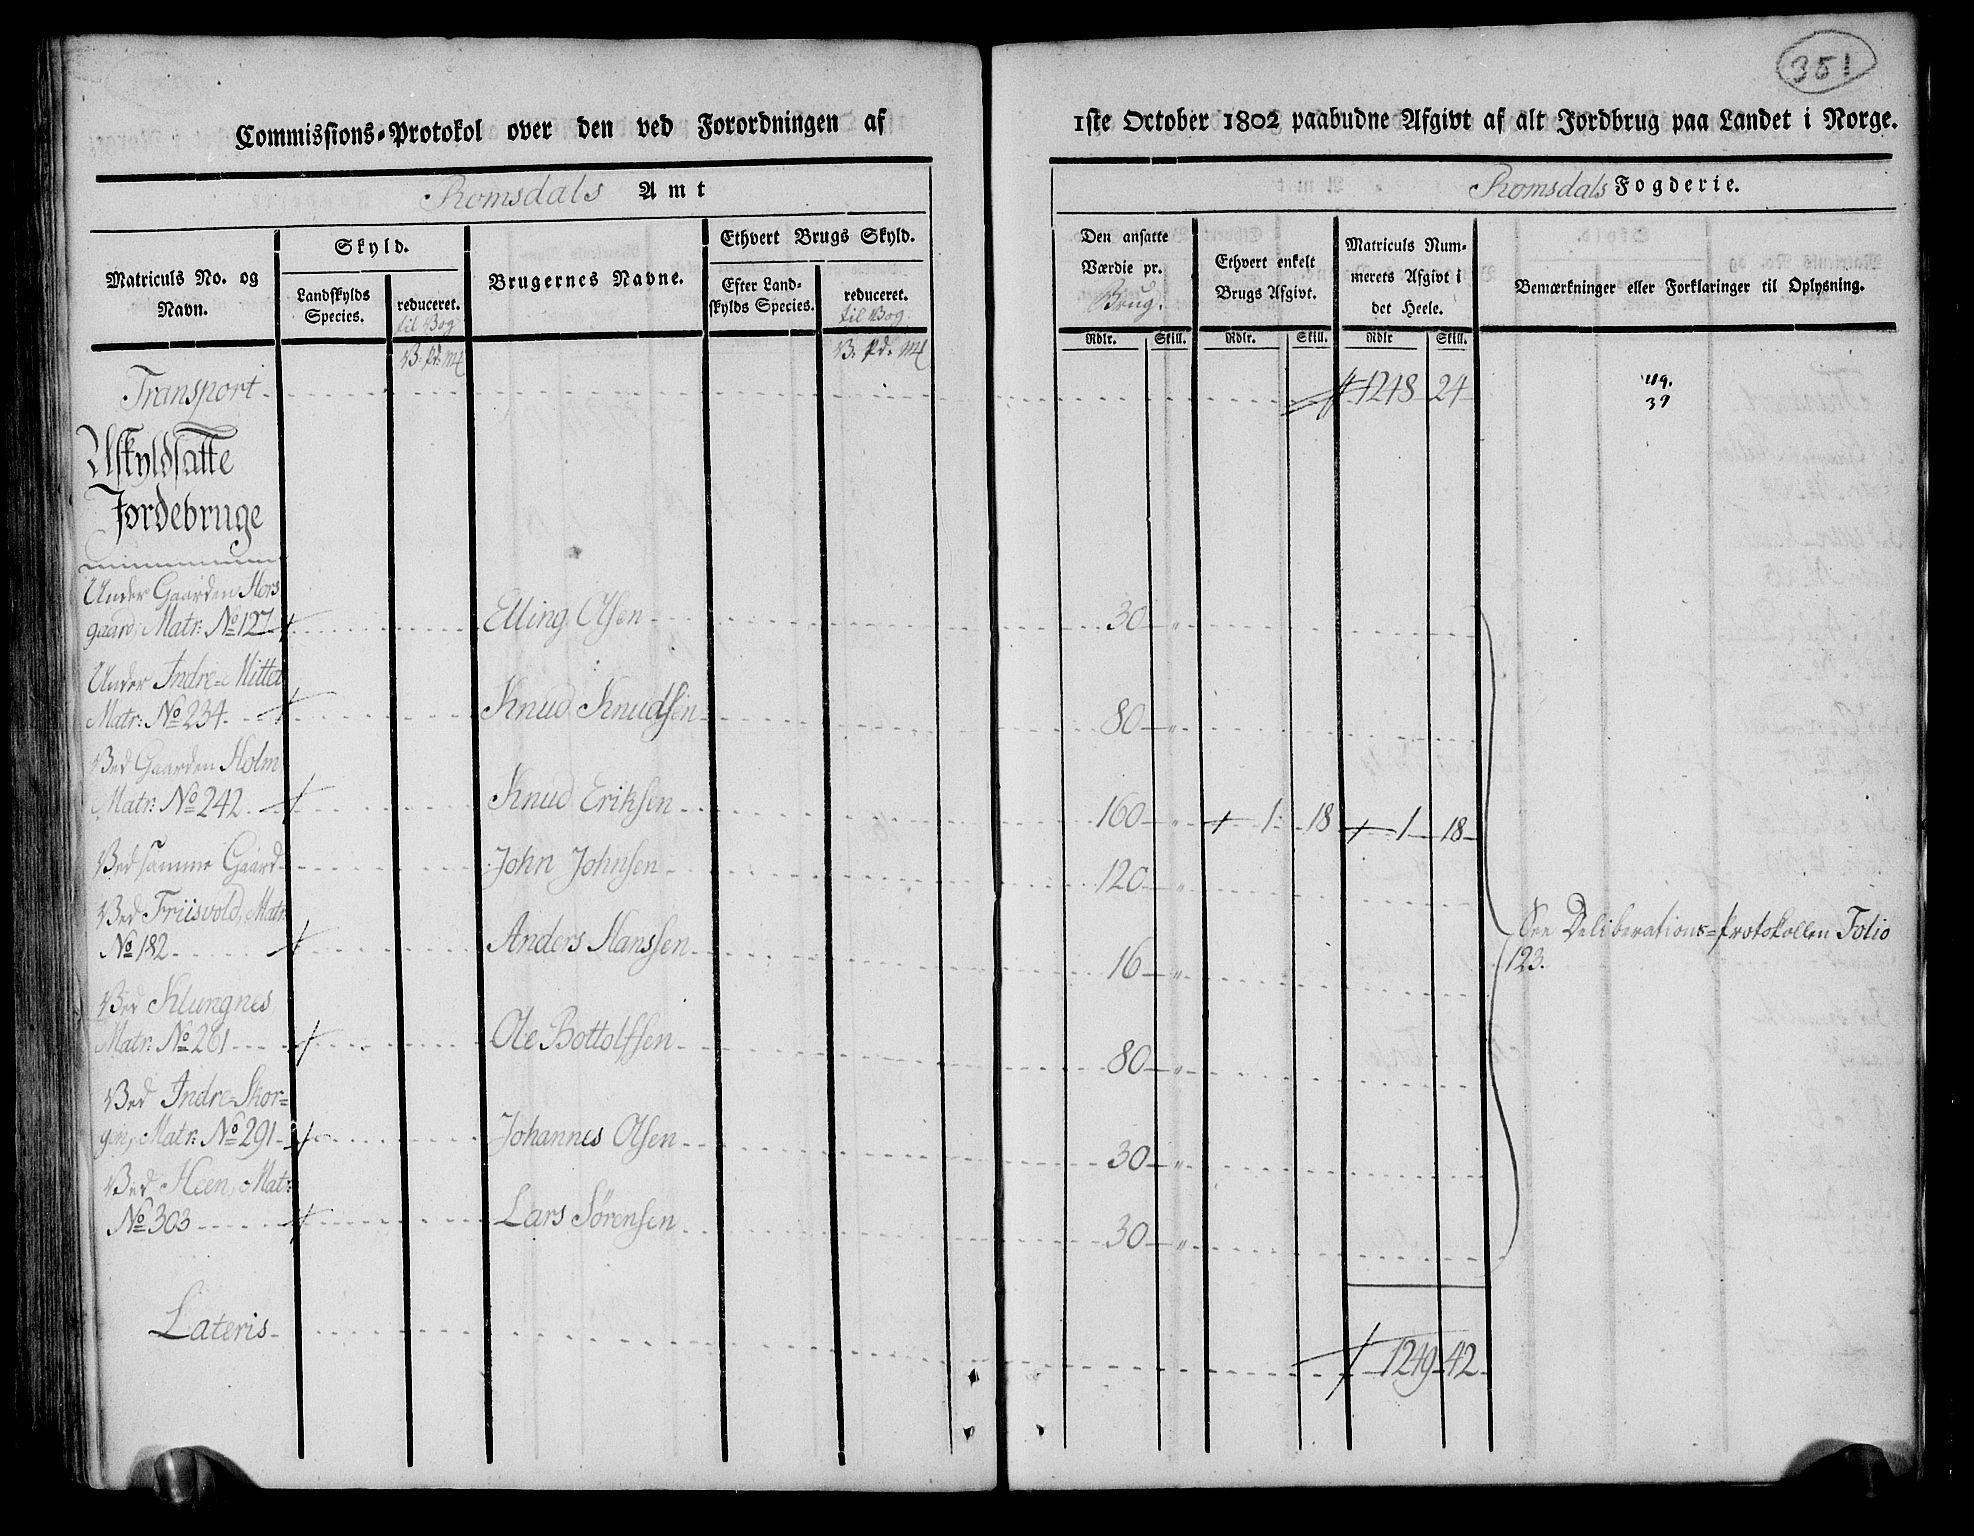 351
Commissions-Protokol over den ved Forordningen af 1ste October 1802 paabudne Afgivt af alt Jordbrug paa Landet i Norge.
Romsdals Amt
Romsdals Fogderie.
Matriculs No. og Navn.
Skyld.
Landskylds Species.
reduceret.
til Bog
B: pd: mk
Brugernes Navne.
Ethvert Brugs Skyld.
Efter Landskylds Species.
reduceret.
til Bog.
B: pd. mk
Den ansatte Værdie pr.
Brug.
Rdlr. Skill.
Ethvert enkelt Brugs Afgivt.
Rdlr. Skill.
Matriculs Nummerets Afgivt i det Heele.
Rdlr Skill.
Bemærkninger eller Forklaringer til Oplysning.
Transport 1248 24
39
Uskyldsatte
Jordebruge
Under Gaarden Hors
gaard, Matr: No 127 Elling Olsen 30 "
Under Indre-Mittet
Matr: No 234. Knud Knudsen 80 "
Ved Gaarden Holm
Matr: No 242. Knud Eriksen 160 " 1 18 1 18
Ved samme Gaard John Johnsen 120 "
Ved Friisvold, Matr:
No 182 Anders Hanssen 16 "
See Deliberations-Protokollen Folio
123.
Ved Klungnes
Matr: No 261 Ole Bottolfsen 80 "
Ved Indre-Skor=
gen, Matr: No 291 Johannes Olsen 30 "
Ved Heen, Matr:
No 303 Lars Sørensen 30 "
Lateris 1249 42